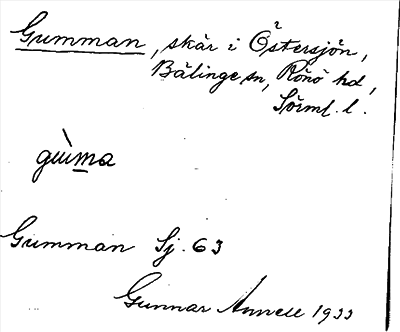 Gumman, skär i Östersjön,
Bälinge sn, Rönö hd,
Sörml. l.
gùma
Gumman Sj. 63
Gunnar Annell 1933